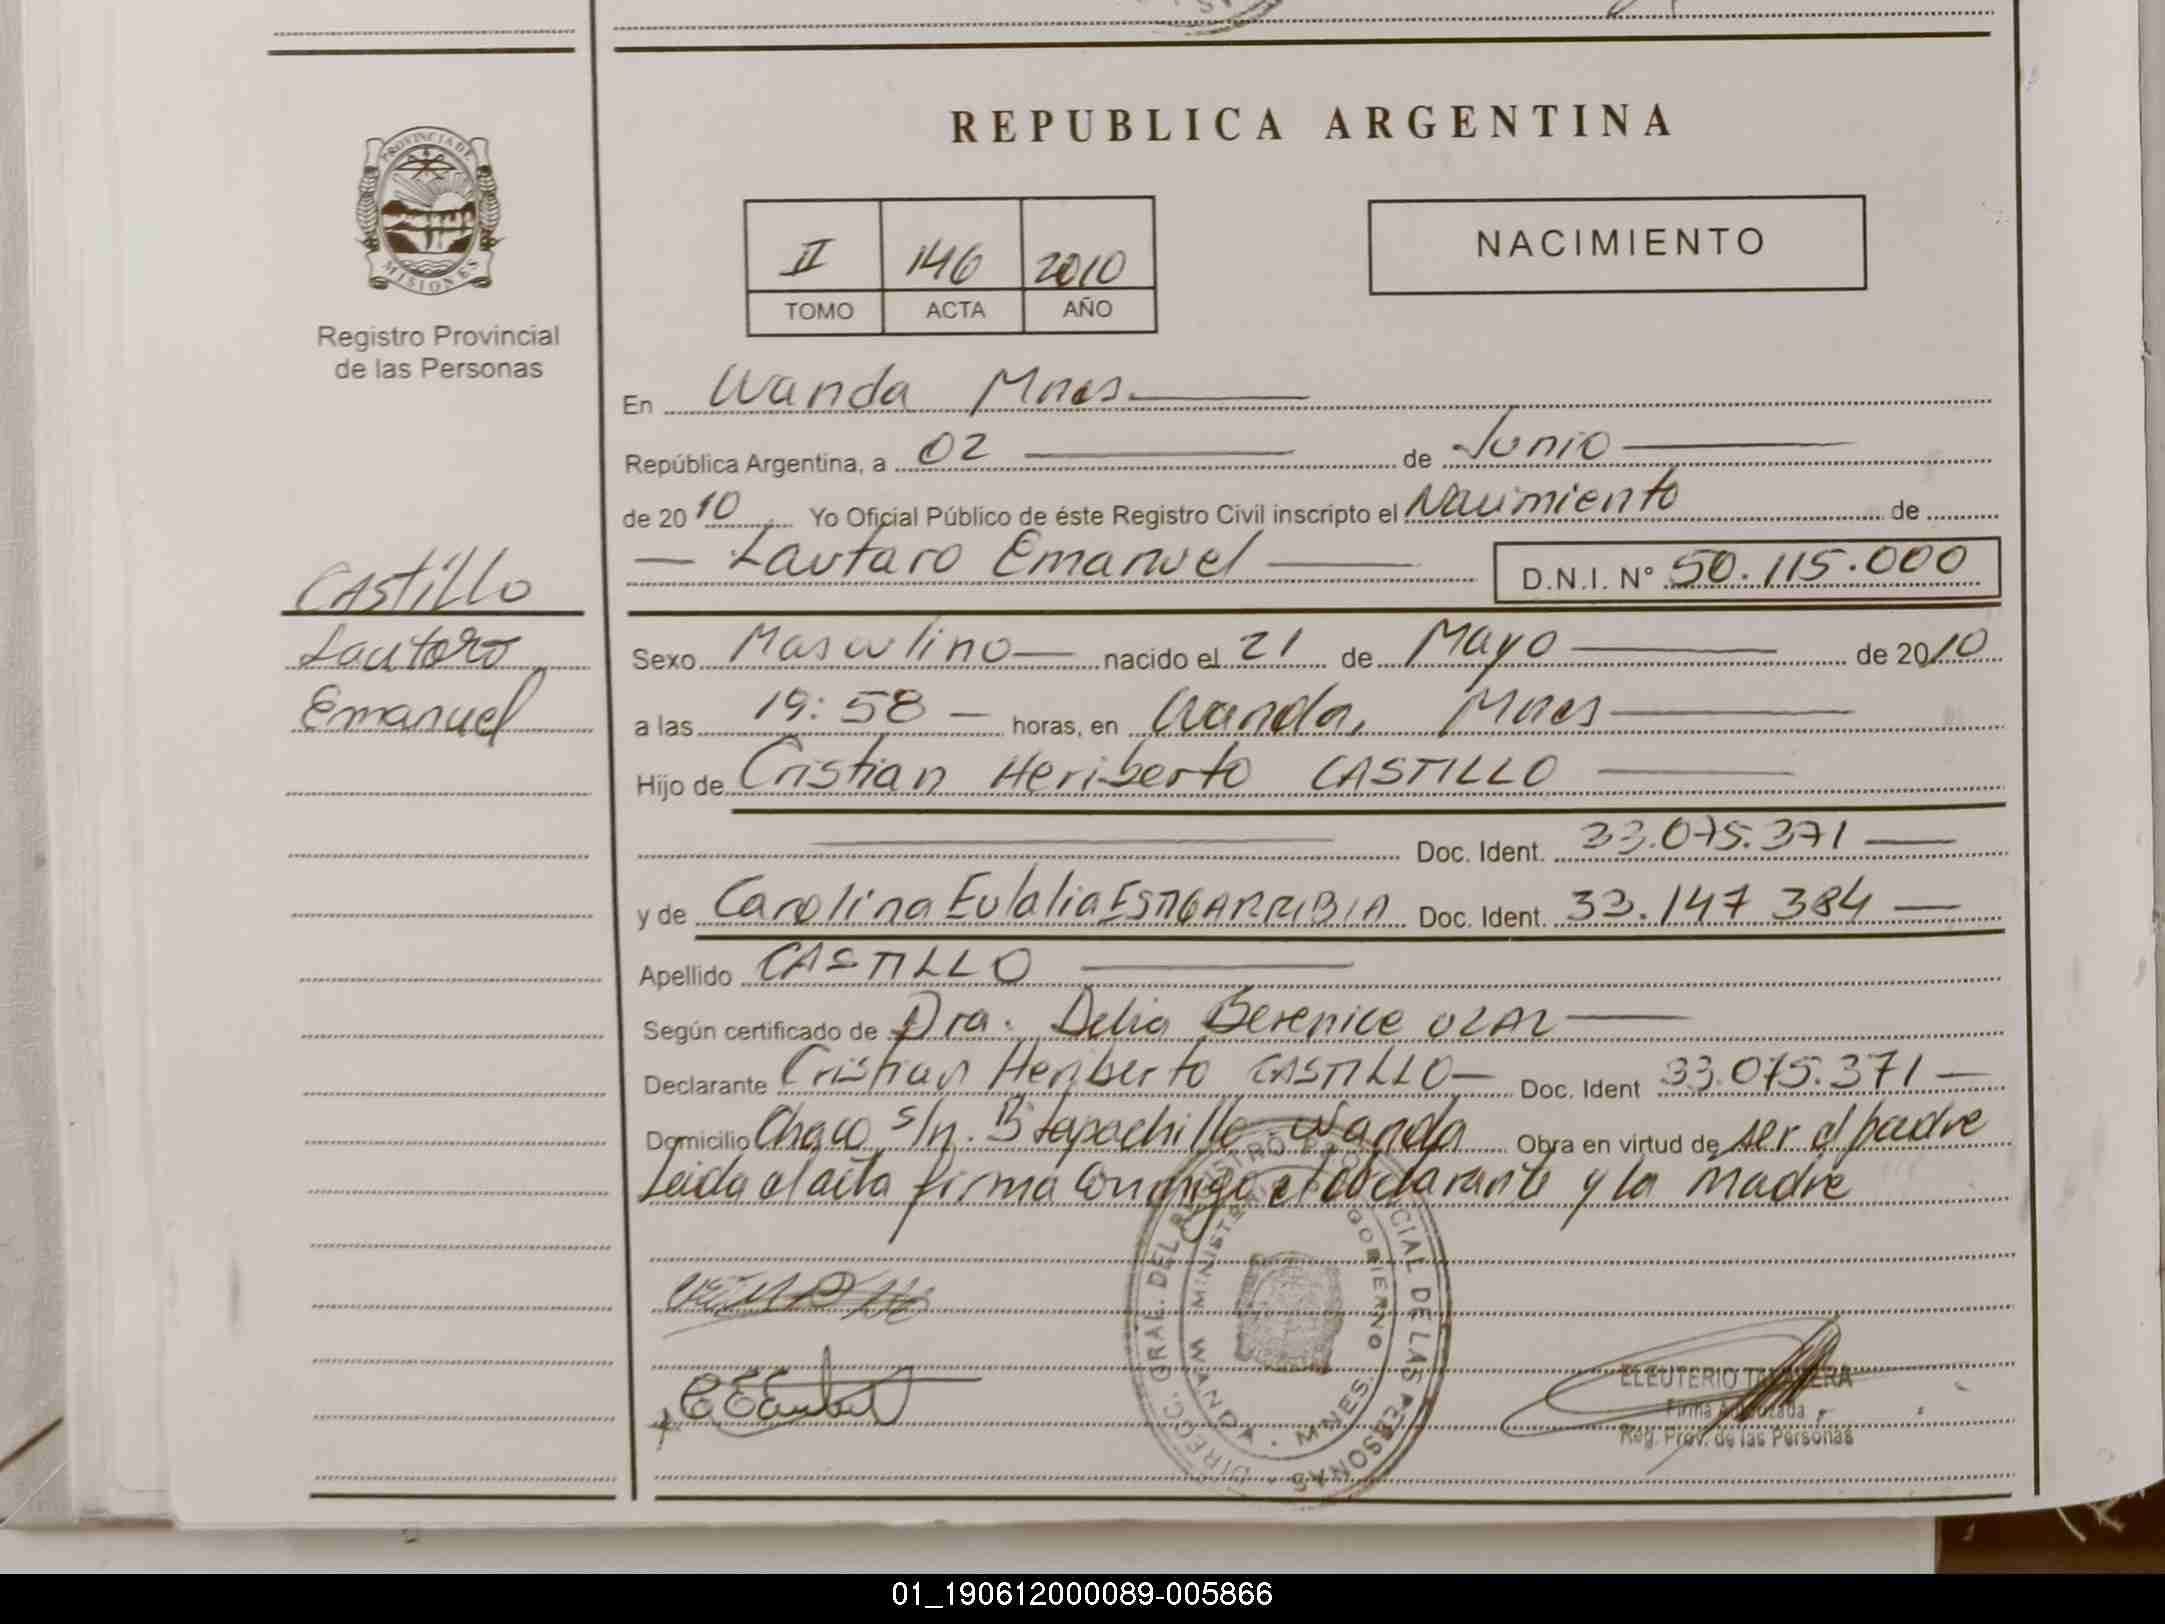 REPUBLICA ARGENTINA
PROVINCIA DE MISIONES
Registro Provincial
de las Personas
II 146 2010
TOMO ACTA AÑO
NACIMIENTO
En Wanda Mnes
República Argentina, a 02 de Junio
de 2010 Yo Oficial Público de éste Registro Civil inscripto el Nacimiento de
Lautaro Emanuel D.N.I. Nº 50.115.000
CASTILLO
Lautaro
Emanuel
Sexo Masculino nacido el 21 de Mayo de 2010
a las 19:58 horas, en Wanda, Mnes
Hijo de Cristian Heriberto CASTILLO
Doc. Ident. 33.075.371
y de Carolina Eulalia ESTIGARRIBIA Doc. Ident. 33.147.384
Apellido CASTILLO
Según certificado de Dra. Delia Berenice
Declarante Cristian Heriberto CASTILLO Doc. Ident 33.075.371
Domicilio Chaco s/n. Wanda Obra en virtud de ser el padre
Leida el acta firma conmigo el declarante y la madre
DIRECC. GRAL. DEL REGISTRO PROVINCIAL DE LAS PERSONAS
MINISTERIO GOBIERNO
WANDA - MNES.
ELEUTERIO TALAVERA
Firma Autorizada
Reg. Prov. de las Personas
01_190612000089-005866